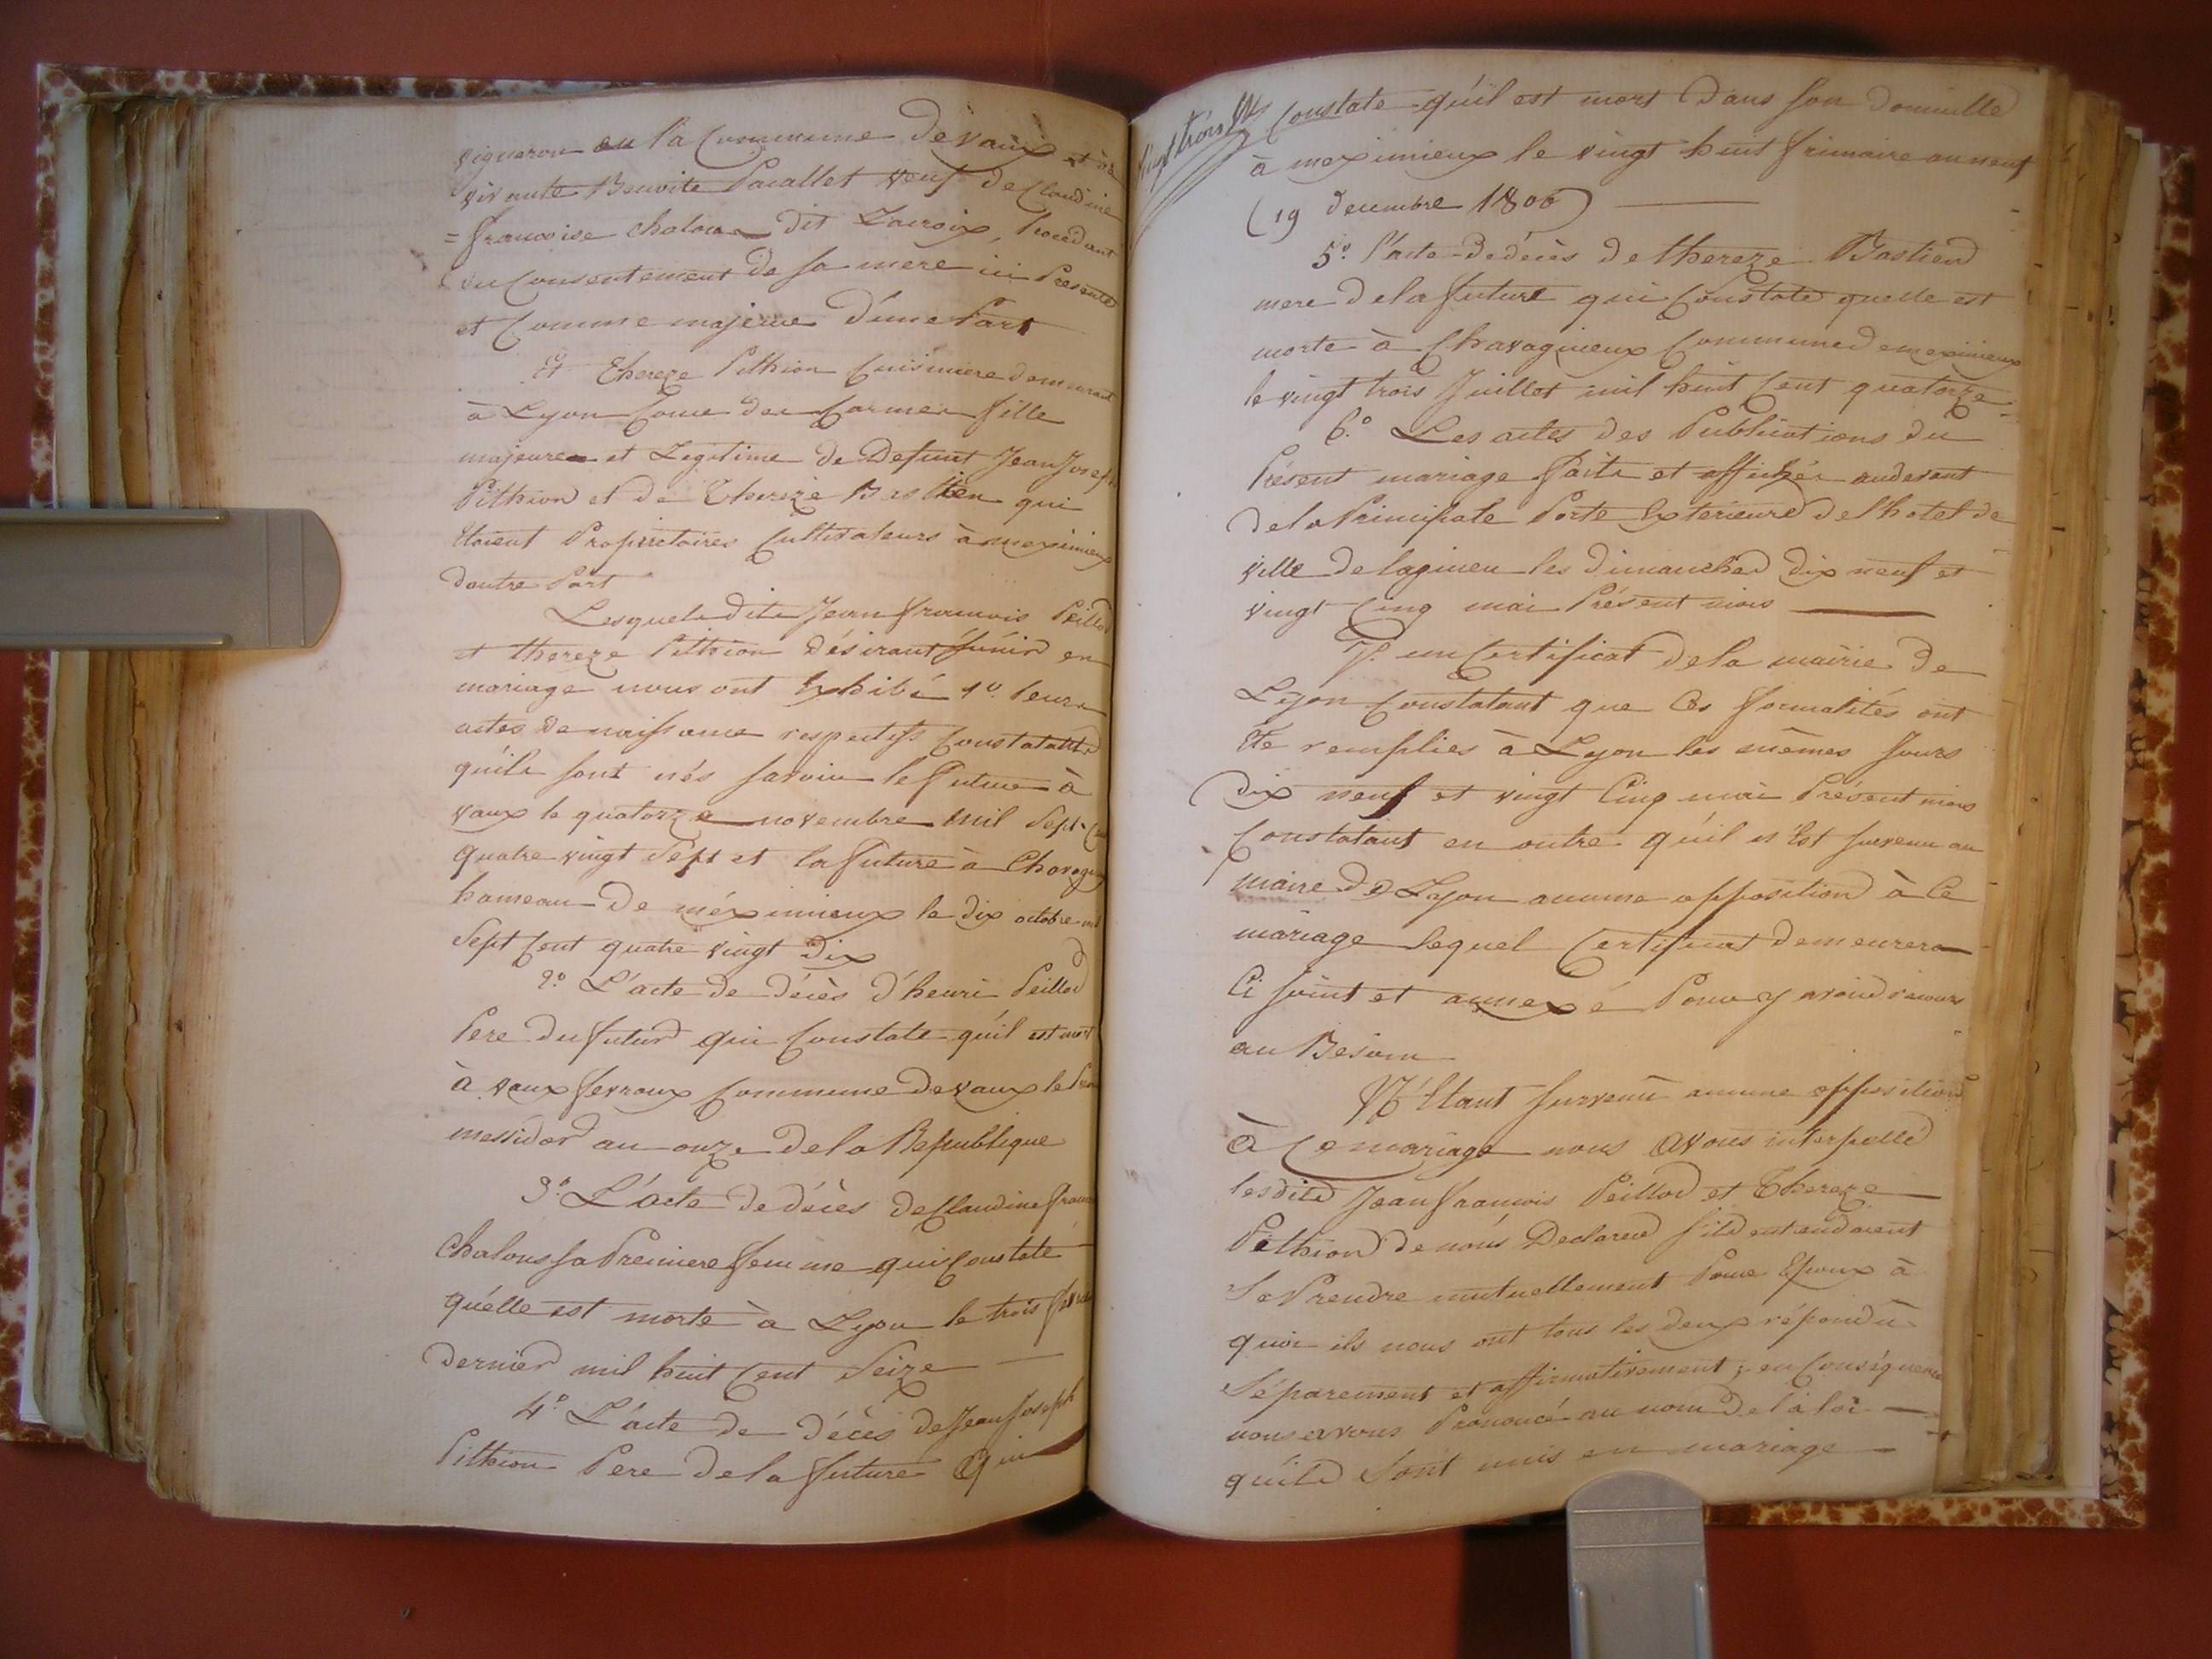 vigneron en la Commune de Vaux et de
vivante Benoite Pacallet veuf de Claudine
= francoise chalon dit Lacroix, Procedant
du Consentement de sa mere ici Presente
et Comme majeur d'une Part
Et Thereze Pithion Cuisiniere demeurant
à Lyon des Carmes fille
majeure et Legitime de Defunt Jean Joseph
Pithion et de Thereze Bastien qui
étoient Proprietaires Cultivateurs à meximieux
dautre Part
Lesquels dits Jean francois Peillod
et thereze Pithion désirant s'unir en
mariage nous ont Exhibé 1º. leurs
actes de naissance respectifs Constatants
qu'ils sont nés savoir le futur à
vaux le quatorze novembre mil Sept Cent
quatre vingt Sept et la future à Chavagnieux
hameau de méximieux le dix octobre mil
Sept Cent quatre vingt Dix
2º. L'acte de décès d'henri Peillod
Pere du futur qui Constate qu'il est mort
à vaux fevroux Commune de vaux le
messidor an onze de la Republique
3º. L'acte de décès de Claudine francoise
Chalons sa Premiere femme qui Constate
qu'elle est morte à Lyon le trois fevrier
dernier mil huit Cent Seize
4º. L'acte de décès de Jean Joseph
Pithion Pere de la future Qui
vingt trois
Constate qu'il est mort Dans son domicille
à meximieux le vingt huit frimaire an neuf
(19 decembre 1800)
5º. l'acte de décès de thereze Bastien
mere de la future qui Constate quelle est
morte à Chavagnieux Commune de meximieux
le vingt trois Juillet mil huit Cent quatorze
6.º Les actes des Publications du
Présent mariage faites et affichées au devant
de la Principale Porte Exterieure de lhotel de
ville de lagnieu les dimanches dix neuf et
vingt Cinq mai Présent mois
7º. un Certificat de la mairie de
Lyon Constatant que Ces formalités ont
été remplies à Lyon les mêmes Jours
dix neuf et vingt Cinq mai Présent mois
Constatant en outre qu'il n'est survenu au
maire de Lyon aucune opposition à Ce
mariage lequel Certificat demeurera
Ci joint et annexé Pour y avoir recours
au Besoin
N'étant survenù aucune opposition
à Ce mariage nous avons interpellé
lesdits Jean francois Peillod et Thereze
Pithion de nous Declarer s'ils entendoient
Se Prendre mutuellement Pour Epoux à
quoi ils nous ont tous les deux répondu
Séparement et affirmativement; en Conséquence
nous avons Prononcé au nom de la loi
qu'ils Sont unis en mariage